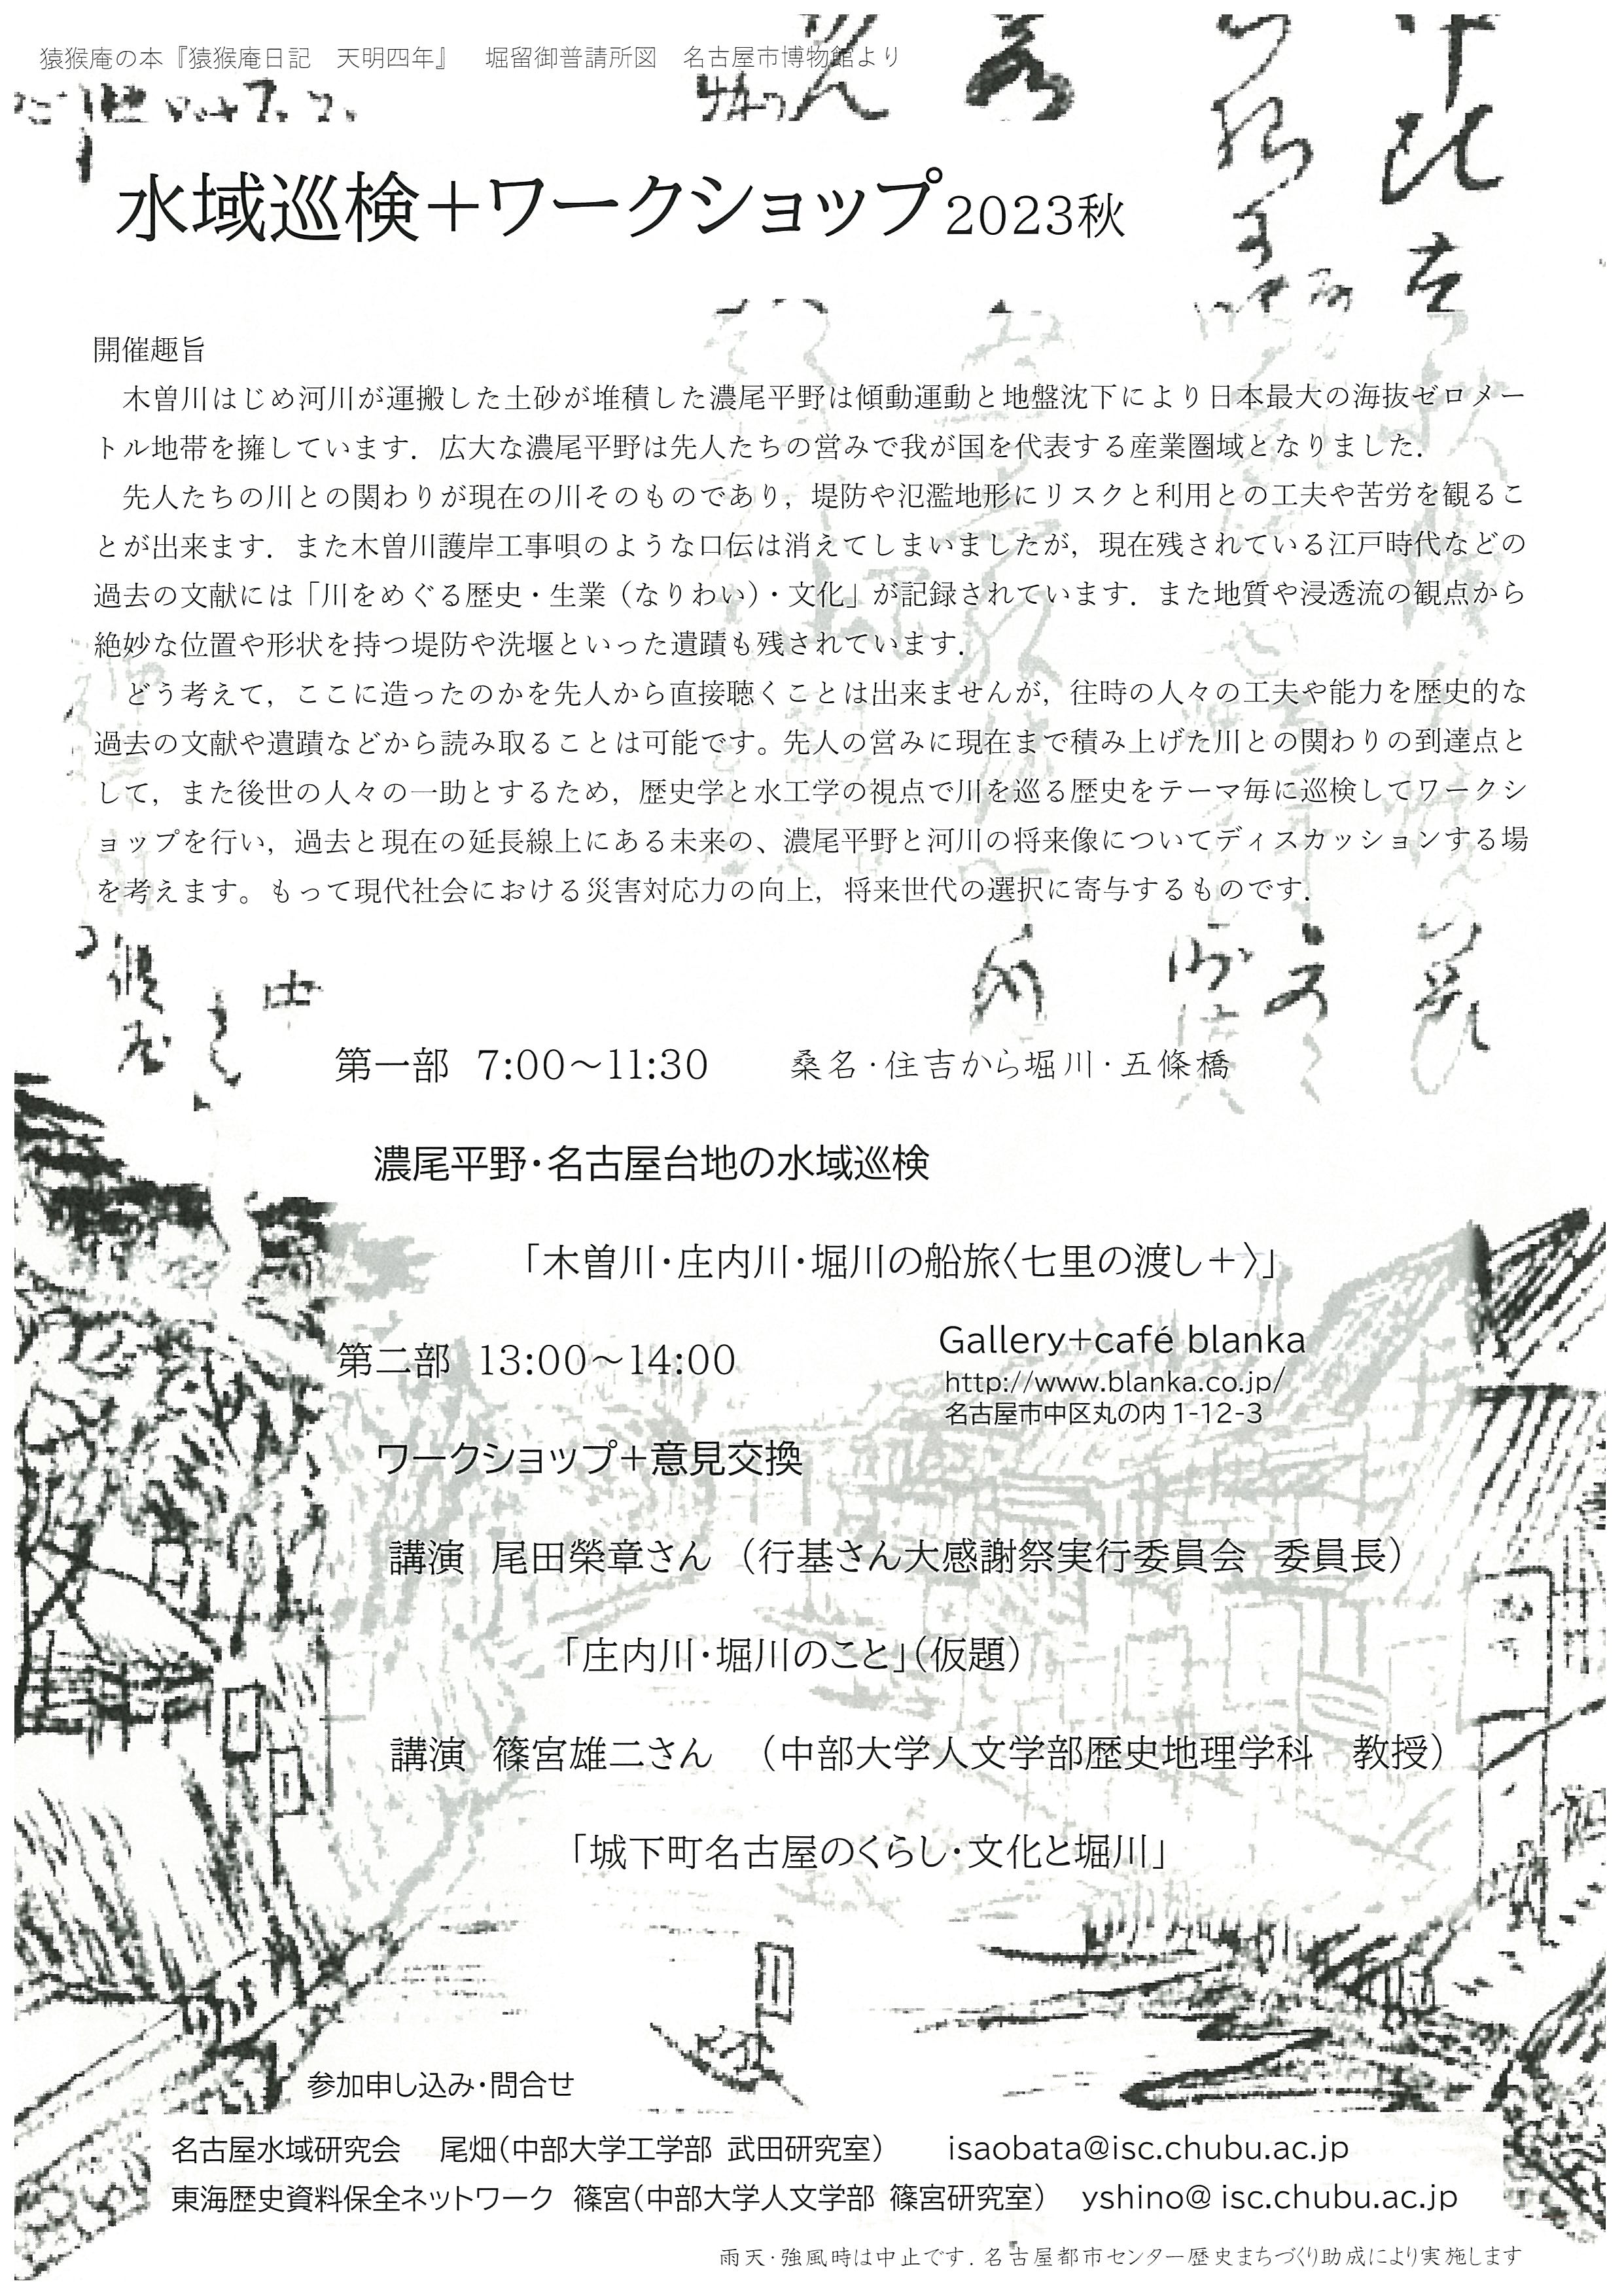 猿猴庵の本『猿猴庵日記　天明四年』　堀留御普請所図　名古屋市博物館より
水域巡検＋ワークショップ2023秋
開催趣旨
　木曽川はじめ河川が運搬した土砂が堆積した濃尾平野は傾動運動と地盤沈下により日本最大の海抜ゼロメー
トル地帯を擁しています．広大な濃尾平野は先人たちの営みで我が国を代表する産業圏域となりました．
　先人たちの川との関わりが現在の川そのものであり，堤防や氾濫地形にリスクと利用との工夫や苦労を観るこ
とが出来ます．また木曽川護岸工事唄のような口伝は消えてしまいましたが，現在残されている江戸時代などの
過去の文献には「川をめぐる歴史・生業（なりわい）・文化」が記録されています．また地質や浸透流の観点から
絶妙な位置や形状を持つ堤防や洗堰といった遺蹟も残されています．
　どう考えて，ここに造ったのかを先人から直接聴くことは出来ませんが，往時の人々の工夫や能力を歴史的な
過去の文献や遺蹟などから読み取ることは可能です。先人の営みに現在まで積み上げた川との関わりの到達点と
して，また後世の人々の一助とするため，歴史学と水工学の視点で川を巡る歴史をテーマ毎に巡検してワークシ
ョップを行い，過去と現在の延長線上にある未来の、濃尾平野と河川の将来像についてディスカッションする場
を考えます。もって現代社会における災害対応力の向上，将来世代の選択に寄与するものです．
第一部　7:00～11:30　　桑名・住吉から堀川・五條橋
濃尾平野・名古屋台地の水域巡検
「木曽川・庄内川・堀川の船旅〈七里の渡し＋〉」
第二部　13:00～14:00
Gallery+café blanka
http://www.blanka.co.jp/
名古屋市中区丸の内1-12-3
ワークショップ＋意見交換
講演　尾田榮章さん　（行基さん大感謝祭実行委員会　委員長）
「庄内川・堀川のこと」（仮題）
講演　篠宮雄二さん　（中部大学人文学部歴史地理学科　教授）
「城下町名古屋のくらし・文化と堀川」
参加申し込み・問合せ
名古屋水域研究会　尾畑（中部大学工学部 武田研究室）　isaobata@isc.chubu.ac.jp
東海歴史資料保全ネットワーク　篠宮（中部大学人文学部 篠宮研究室）　yshino@ isc.chubu.ac.jp
雨天・強風時は中止です．名古屋都市センター歴史まちづくり助成により実施します